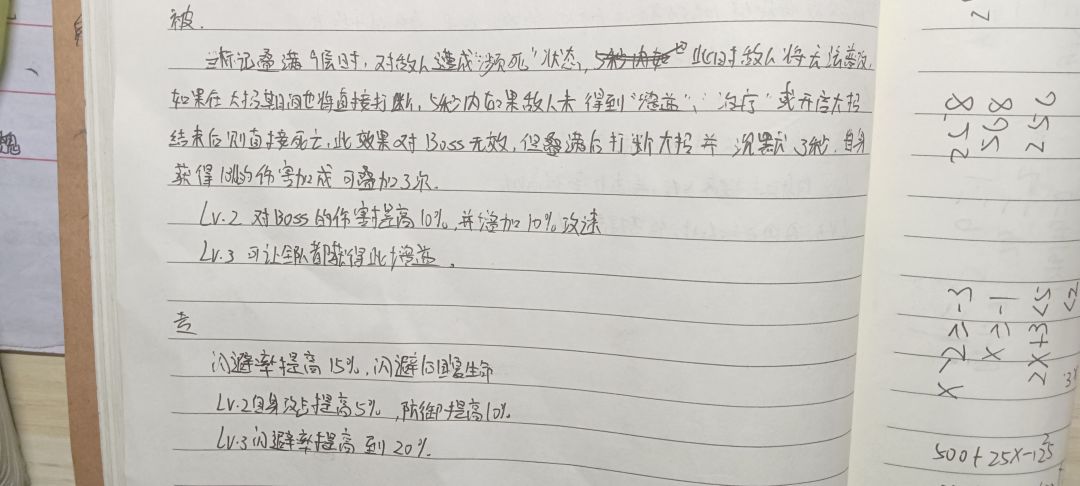 被.
当标记叠满9层时,对敌人造成"濒死"状态,此时敌人将无法
如果在大招期间也将直接打断,5秒内如果敌人未得到"增益"、"治疗"或开启大招
结束后则直接死亡,此效果对Boss无效,但叠满后打断大招并沉默3秒,自身
获得10%的伤害加成可叠加3次.
Lv.2 对Boss的伤害提高10%,并增加10%攻速
Lv.3 可让全队都获得此增益.
闪避率提高15%,闪避后回复生命
Lv.2自身攻击提高5%,防御提高10%.
Lv.3闪避率提高到20%.
x-2≥-3
x≥-1
2x+3<5
500+25x-125